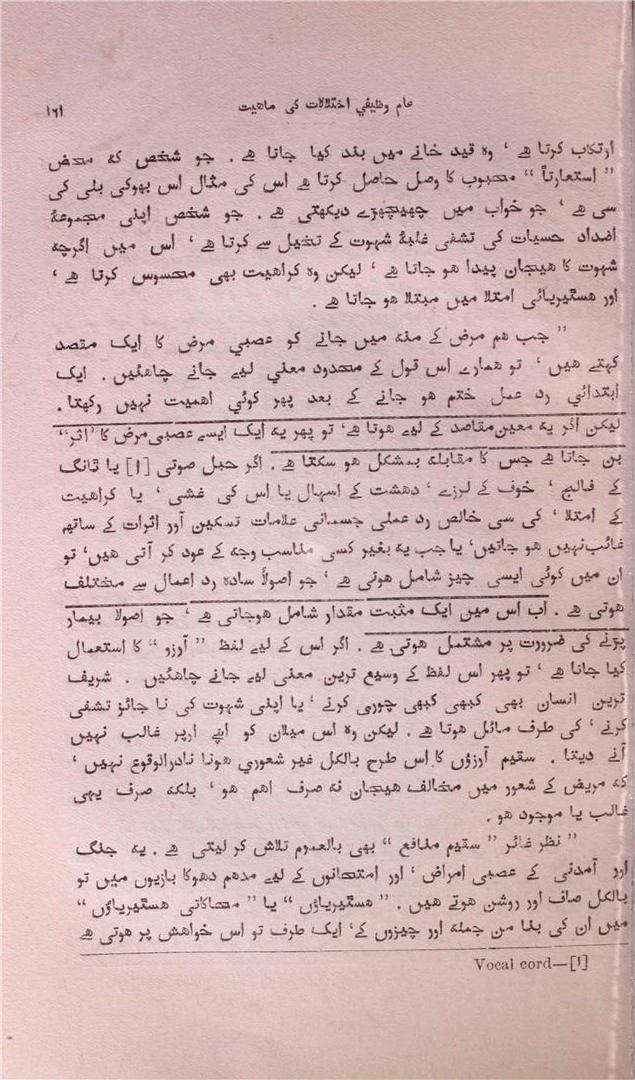 عام وظیفي اختلالات کی ماهیت ١٦١
ارتکاب کرتا هے ، وه قید خانے میں بند کیا جاتا هے . جو شخص که محض
” استعارتاً “ محبوب کا وصل حاصل کرتا هے اس کی مثال اس بھوکی بلی کی
سی هے ، جو خواب میں چھیچھڑے دیکھتی هے . جو شخص اپنی مجموعۀ
اضداد حسیات کی تشفی غلبۀ شہوت کے تخیل سے کرتا هے ، اس میں اگرچه
شہوت کا هیجان پیدا هو جاتا هے ، لیکن وه کراهیت بھی محسوس کرتا هے ،
اور هسٹیریائی امتلا میں مبتلا هو جاتا هے .
” جب هم مرض کے منه میں جانے کو عصبي مرض کا ایک مقصد
کہتے هیں ، تو همارے اس قول کے محدود معني لیے جانے چاهئیں . ایک
ابتدائي رد عمل ختم هو جانے کے بعد پھر کوئي اهمیت نہیں رکھتا .
لیکن اگر یه معین مقاصد کے لیے هوتا هے، تو پھر یه ایک ایسے عصبي مرض کا ”اثر“
بن جاتا هے جس کا مقابله بمشکل هو سکتا هے . اگر حبل صوتی [١] یا ٹانگ
کے فالج ، خوف کے لرزے ، دهشت کے اسہال یا اس کی غشی ، یا کراهیت
کے امتلا ، کی سی خالص رد عملی جسمانی علامات تسکین آور اثرات کے ساتھ
غائب نہیں هو جاتیں، یا جب یه بغیر کسی مناسب وجه کے عود کر آتی هیں، تو
ان میں کوئی ایسی چیز شامل هوتی هے ، جو اصولاً ساده رد اعمال سے مختلف
هوتی هے . اب اس میں ایک مثبت مقدار شامل هوجاتی هے ، جو اصولا بیمار
پڑنے کی ضرورت پر مشتمل هوتی هے . اگر اس کے لیے لفظ ” آرزو “ کا استعمال
کیا جاتا هے ، تو پھر اس لفظ کے وسیع ترین معنی لیے جانے چاهئیں . شریف
ترین انسان بھی کبھی کبھی چوری کرنے ، یا اپنی شہوت کی نا جائز تشفی
کرنے ، کی طرف مائل هوتا هے . لیکن وه اس میلان کو اپنے اوپر غالب نہیں
آنے دیتا . سقیم آرزوؤں کا اس طرح بالکل غیر شعوری هونا نادرالوقوع نہیں ،
که مریض کے شعور میں مخالف هیجان نه صرف اهم هو ، بلکه صرف یہی
غالب یا موجود هو .
” نظر غائر ” سقیم منافع “ بھی بالعموم تلاش کر لیتی هے . یه جنگ
اور آمدنی کے عصبي امراض ، اور امتحانوں کے لیے مدهم دهوکا بازیوں میں تو
بالکل صاف اور روشن هوتے هیں . ” هسٹیریاؤں “ یا ” محاکاتی هسٹیریاؤں “
میں ان کی بنا من جمله اور چیزوں کے، ایک طرف تو اس خواهش پر هوتی هے
Vocal cord—[١]